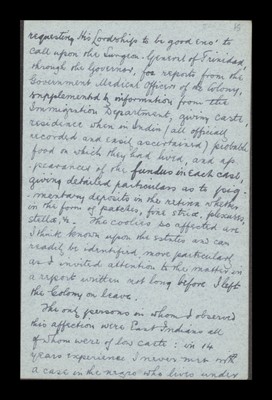 requesting His Lordships to be good eno' to
call upon the Surgeon General of Trinidad,
through the Governor, for reports from the
Government Medical Officers of the Colony,
supplemented by information from the
Immigration Department, giving caste,
residence when in India (all official
recorded and easily ascertained) probable
food on which they had lived, and ap-
pearances of the fundus in each case,
giving detailed particulars as to pig-
mentary deposits in the retina whether
in the form of patches, fine striæ, plexuses,
stellæ, &c. The coolies so affected are
I think known upon the estates and can
readily be identified, more particularly
as I invited attention to the matter in
a report written not long before I left
the Colony on leave.
The only persons in whom I observed
this affection were East Indians all
of whom were of low caste: in 14
years experience I never met with
a case in the negro who lives under